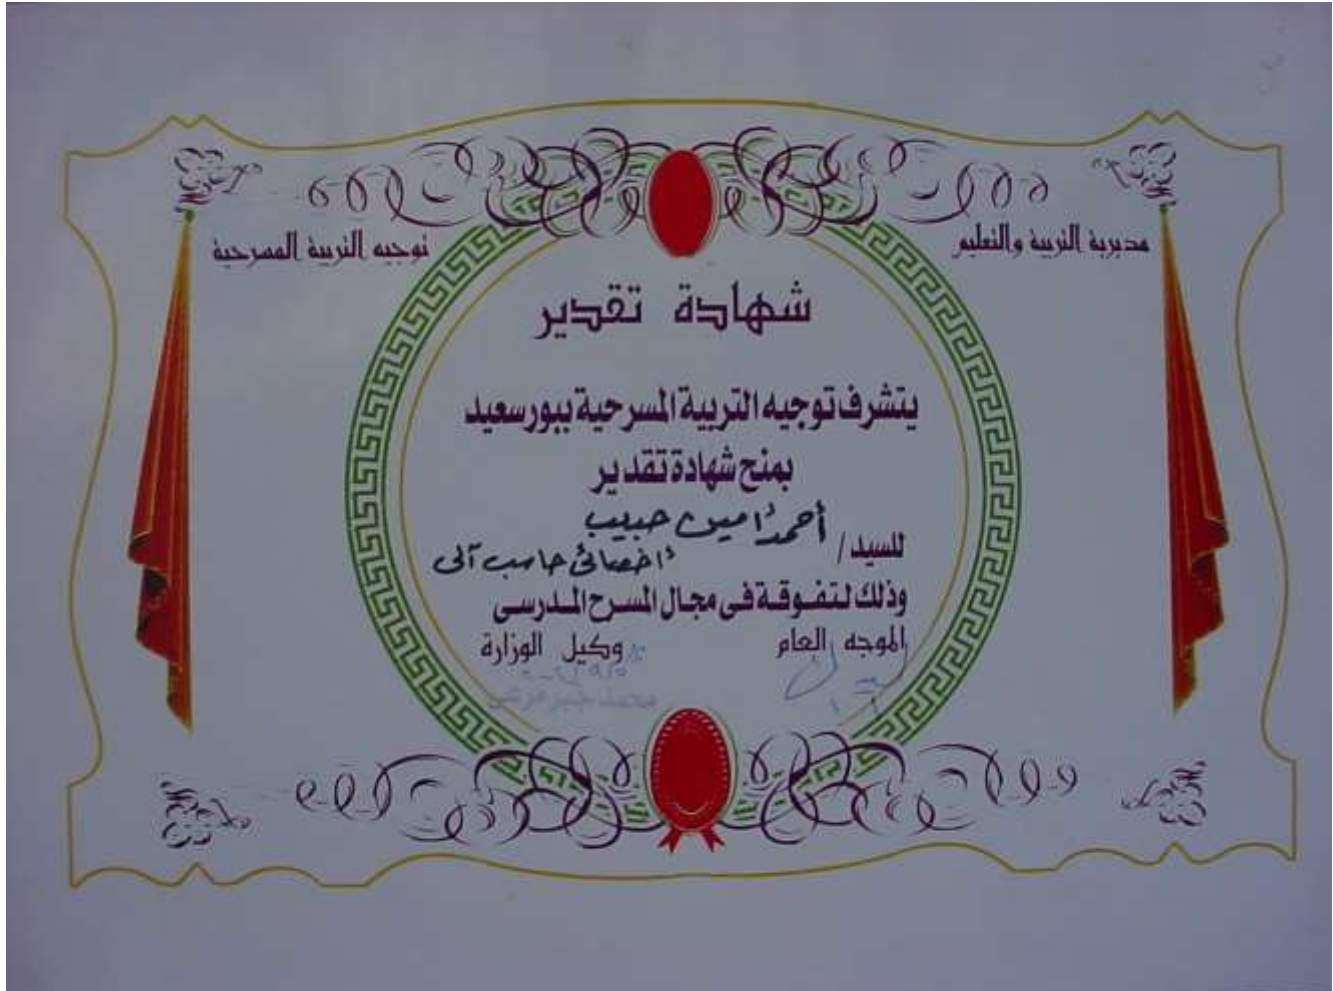 مديرية التربية والتعليم
توجيه التربية المسرحية
شهادة تقدير
يتشرف توجيه التربية المسرحية ببورسعيد
بمنح شهادة تقدير
للسيد / أحمد أمين حبيب
أخصائى حاسب آلى
وذلك لتفوقة فى مجال المسرح المدرسى
الموجه العام
وكيل الوزارة
محمد خيبر مرسى